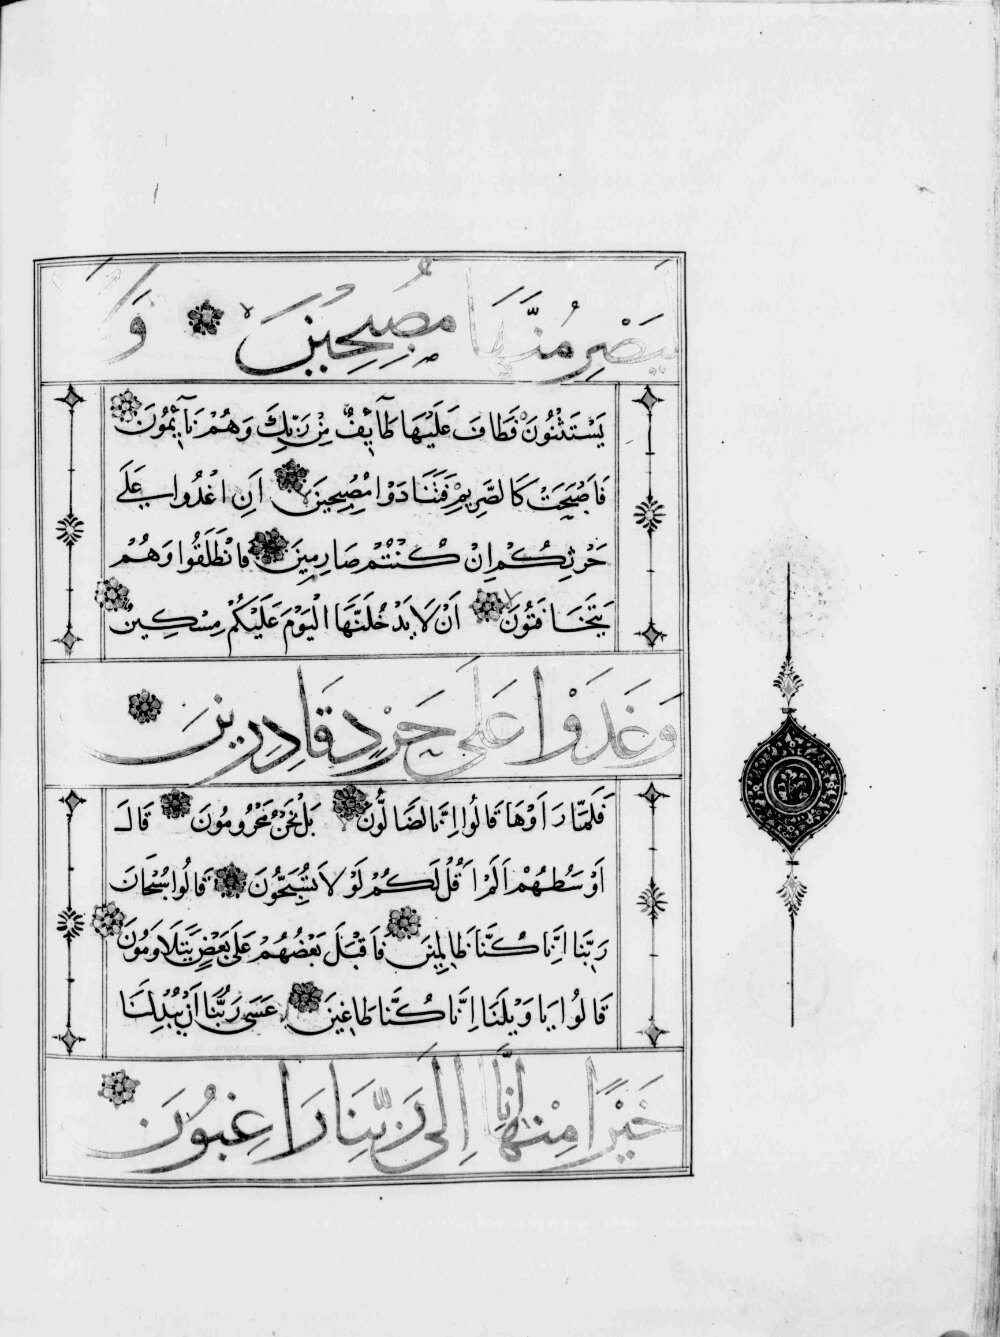 لَيَصْرِمُنَّهَا مُصْبِحِينَ وَلَا
يَسْتَثْنُونَ فَطَافَ عَلَيْهَا طَآئِفٌ مِنْ رَبِّكَ وَهُمْ نَآئِمُونَ
فَاَصْبَحَتْ كَالصَّرِيمِ فَتَنَادَوْا مُصْبِحِينَ اَنِ اغْدُوا عَلَى
حَرْثِكُمْ اِنْ كُنْتُمْ صَارِمِينَ فَانْطَلَقُوا وَهُمْ
يَتَخَافَتُونَ اَنْ لَا يَدْخُلَنَّهَا الْيَوْمَ عَلَيْكُمْ مِسْكِينٌ
وَغَدَوْا عَلَى حَرْدٍ قَادِرِينَ
فَلَمَّا رَاَوْهَا قَالُوا اِنَّا لَضَالُّونَ بَلْ نَحْنُ مَحْرُومُونَ قَالَ
اَوْسَطُهُمْ اَلَمْ اَقُلْ لَكُمْ لَوْلَا تُسَبِّحُونَ قَالُوا سُبْحَانَ
رَبِّنَا اِنَّا كُنَّا ظَالِمِينَ فَاَقْبَلَ بَعْضُهُمْ عَلَى بَعْضٍ يَتَلَاوَمُونَ
قَالُوا يَا وَيْلَنَا اِنَّا كُنَّا طَاغِينَ عَسَى رَبُّنَا اَنْ يُبْدِلَنَا
خَيْرًا مِنْهَا اِنَّا اِلَى رَبِّنَا رَاغِبُونَ